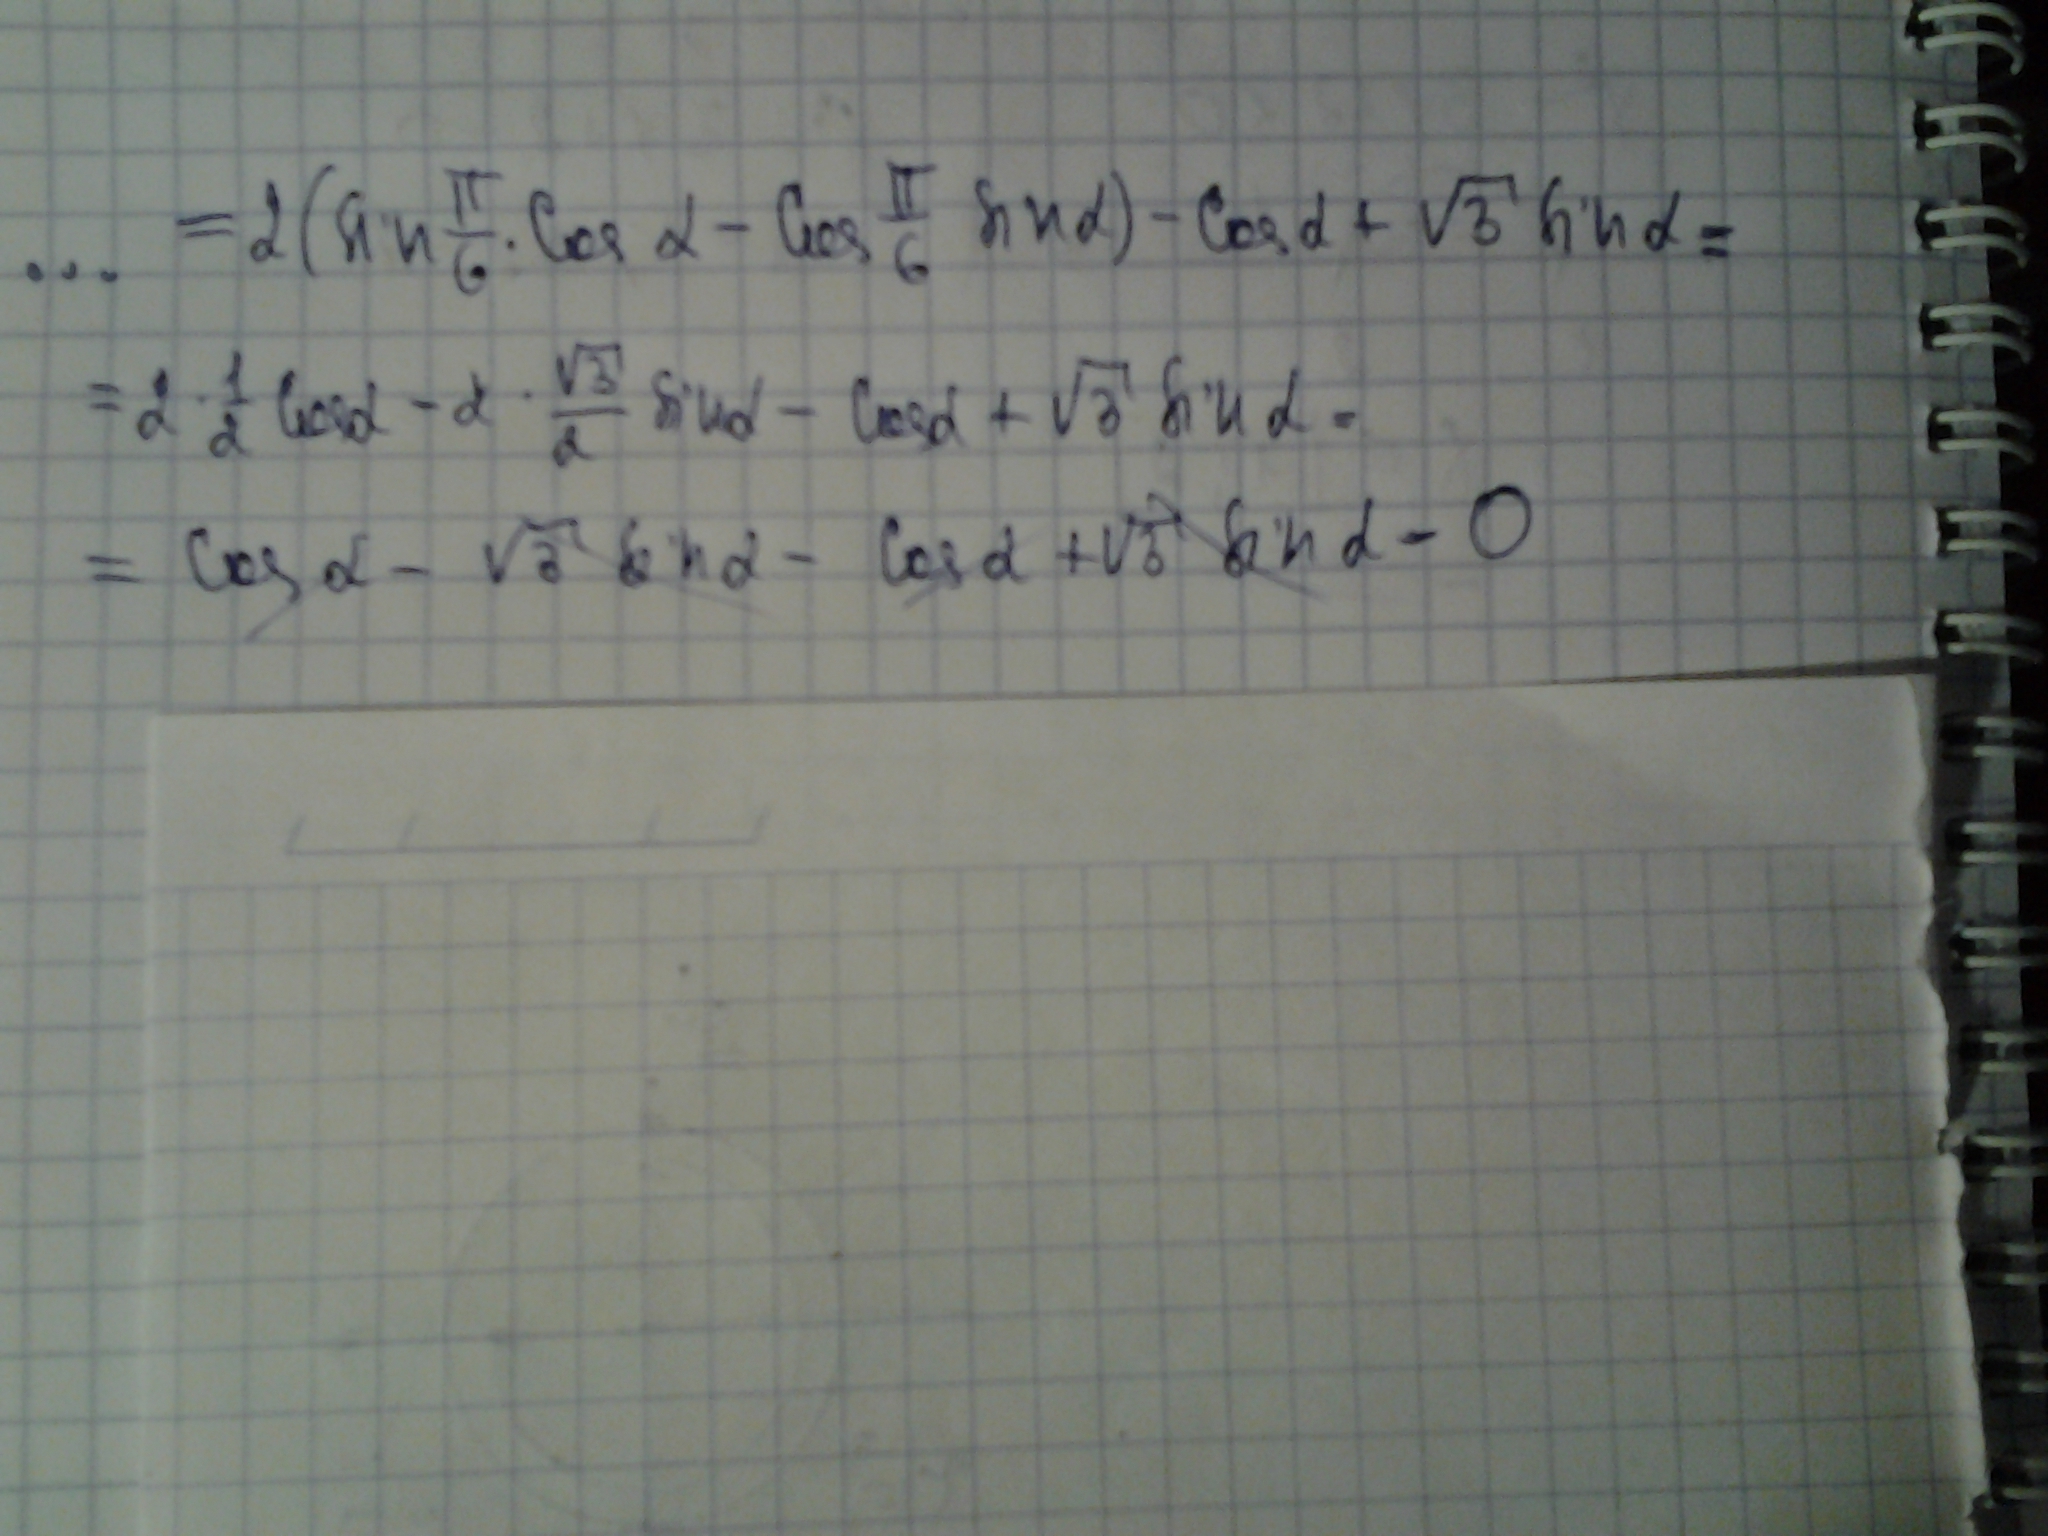 ... = 2(sin π/6 · cos α − cos π/6 sin α) − cos α + √3 sin α =
= 2 · 1/2 cos α − 2 · √3/2 sin α − cos α + √3 sin α =
= cos α − √3 sin α − cos α + √3 sin α = 0